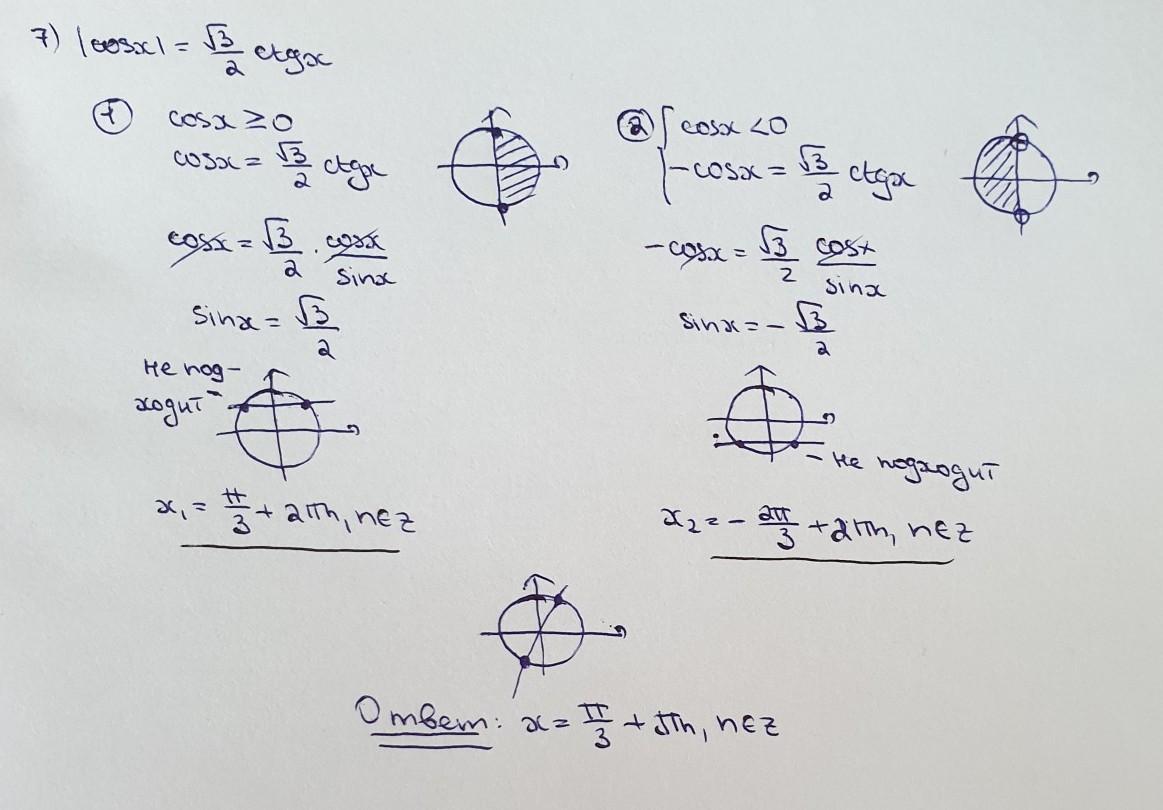 7) |cosx| = √3/2 ctgx
① cosx ≥ 0
cosx = √3/2 ctgx
cosx = √3/2 · cosx/sinx
sinx = √3/2
не под-
ходит
x₁ = π/3 + 2πn, n∈z
② { cosx < 0
-cosx = √3/2 ctgx
-cosx = √3/2 cosx/sinx
sinx = - √3/2
- не подходит
x₂ = - 2π/3 + 2πn, n∈z
Ответ: x = π/3 + πn, n∈z